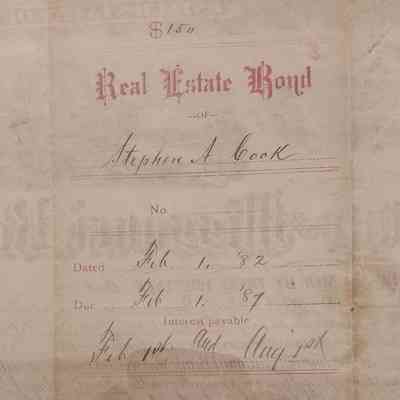 $150
Real Estate Bond
—OF—
Stephen A Cook
No.
Dated Feb 1, '82
Due Feb 1, '87
Interest payable
Feb 1st And Aug 1st